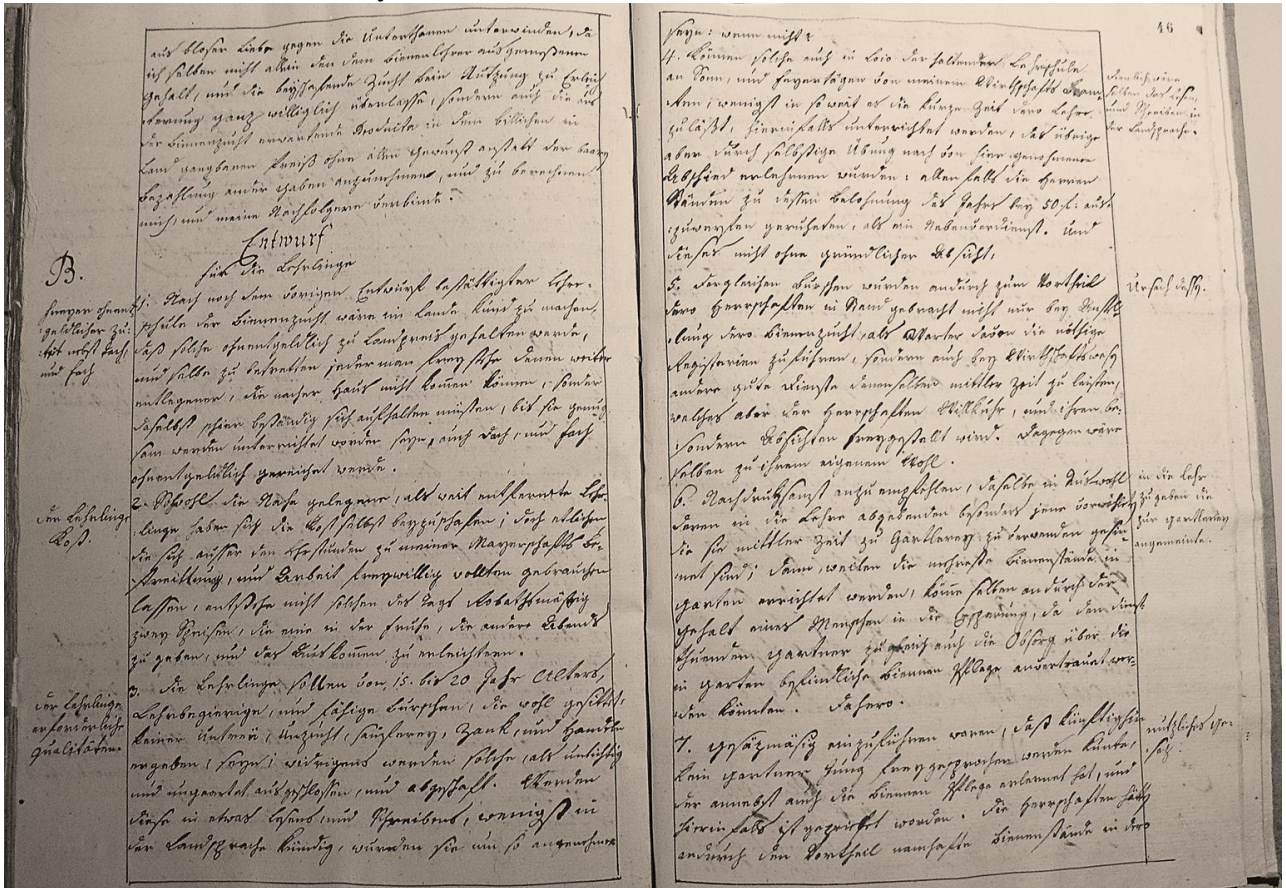 aus bloser Liebe gegen die Unterthanen unterwinden, da
ich selben nicht allein den dem Bienenlehrer ausgemeßenen
Gehalt, und die beyschafende Zucht beim Nutzung zu Erleich
terung ganz williglich überlasse, sondern auch die aus
der Bienenzucht erwartende Producta in dem bilichen im
Land gangbaren Preiß ohne allen Gewinst anstatt der baaren
Bezahlung ander haben anzunehmen, und zu berechnen
mich, und meine Nachfolgere verbinde.
Entwurf
für die Lehrlinge
B.
1. Nach noch dem vorigen Entwurf bestättigter Lehr-
schule der Bienenzucht wäre im Lande kund zu machen,
daß solche ohnentgeldlich zu Landpreis gehalten werde,
und selbe zu betretten jederman frey stehe denen weiter
entlegenen, die nacher Haus nicht kommen können, sonder
daselbst schier beständig sich aufhalten müßten, bis sie genug
sam werden unterrichtet worden seyn, auch Dach, und Fach
ohnentgeldlich gereichet werde.
freyer ohnent
geldlicher Zu-
trit nebst Dach,
und Fach
2. Sowohl die Nahe gelegene, als weit entfernte Lehr-
linge haben sich die Kost selbst beyzuschafen; doch etlichen
die sich ausser den Lehrstunden zu meiner Mayerschafts Be-
streittung, und Arbeit freywillig wollten gebrauchen
lassen, entstehe nicht solchen des Tags Robathsmässig
zwey Speisen, die eine in der Frühe, die andere Abends
zu geben, und das Auskommen zu erleichtern.
der Lehrlinge
Kost.
3. Die Lehrlinge sollen von 15. bis 20 Jahr Alters,
Lehrbegierige, und fähige Burschen, die wohl gesittet,
keiner Untreü, Unzucht, Sauferey, Zank, und Händlen
ergeben, seyn; widrigens werden solche, als untichtig
und ungeartet ausgeschlossen, und abgeschaft. Werden
diese in etwas Lesens, und Schreibens, wenigst in
der Landsprache kündig, wurden sie um so angenehmer
der Lehrlinge
erforderliche
Qualitäten.
46
seyn: wenn nicht:
4. Können solche auch in Loco der haltenden Lehrschule
an Sonn, und Feyertägen von meinem Wirthschafts Beam-
ten, wenigst in so weit es die kurze Zeit dero Lehre
zuläßt, hierinfalls unterrichtet werden, das übrige
aber durch selbstige Übung nach von hier genohmenen
Abschied erlehrnen wurden: allenfalls die Herren
Ständen zu dessen Belohnung des Jahrs bey 50 f: aus-
zuwerfen geruheten, als ein Nebenverdienst. Und
dieses nicht ohne gründlicher Absicht;
selben das Lesen,
und Schreiben in
der Landsprache.
5. Dergleichen Burschen wurden andurch zum Vortheil
dero Herrschaften in Stand gebracht nicht nur bey Anstel-
lung dero Bienenzucht, als Warter davon die nöthige
Registerien zu führen, sondern auch bey Wirthschaftswesen
andere gute Dienste denenselben mittler Zeit zu leisten,
welches aber der Herrschaften Willkuhr, und ihren be-
sondern Absichten freygestellt wird. Dagegen wäre
selben zu ihrem eigenem Wohl.
Ursach dessen.
6. Nachdruksamst anzuempfehlen, daselbe in Auswahl
deren in die Lehre abgebenden besonders jene
die sie mittler Zeit zu Gartlerey zu verwenden gesin-
net sind; dann, weilen die mehreste Bienenstände in
Garten errichtet werden, könne selben andurch der
Gehalt eines Menschen in die Ersparung, da den dienst
thuenden Gartner zugleich auch die Obsorg über die
in Garten befindliche Biennen Pflege anvertrauet wer-
den könnten. Dahero.
in die Lehr
zu geben die
zur Gartlerey
angemeinte.
7. Gesäzmäsig einzuführen waren, daß künftighin
kein Gartner Jung freygesprochen werden kunte,
der annebst auch die Biennen Pflege erlernet hat, und
hierinfalls ist geprüfet worden. Die Herrschaften hätten
andurch den Vortheil namhafte Bienenstände in dero
nutzliches Ge-
säz.